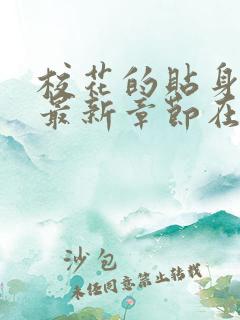 校花的贴身
最新章节在
沙包
未经同意禁止转载